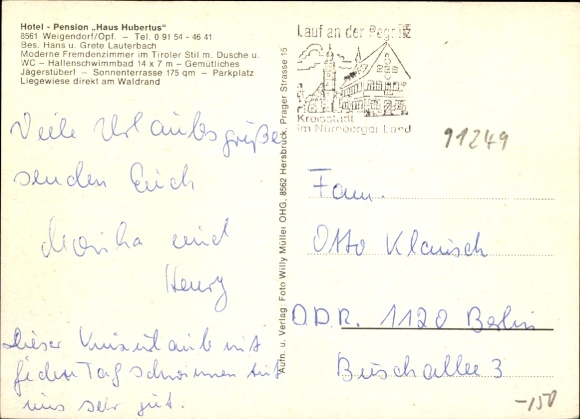 Hotel - Pension „Haus Hubertus“
8561 Weigendorf/Opf. – Tel. 0 91 54 - 46 41
Bes. Hans u. Grete Lauterbach
Moderne Fremdenzimmer im Tiroler Stil m. Dusche u.
WC – Hallenschwimmbad 14 x 7 m – Gemütliches
Jägerstüberl – Sonnenterrasse 175 qm – Parkplatz
Liegewiese direkt am Waldrand
Viele Urlaubsgrüße
senden Euch
Monika und
Henry
Dieser Kurzurlaub mit
jeden Tag schwimmen tut
uns sehr gut.
Aufn. u. Verlag: Foto Willy Müller OHG, 8562 Hersbruck, Prager Strasse 15
Lauf an der Pegnitz
Kreisstadt
im Nürnberger Land
91249
Fam.
Otto Klarisch
D.D.R. 1120 Berlin
Buschallee 3
-150